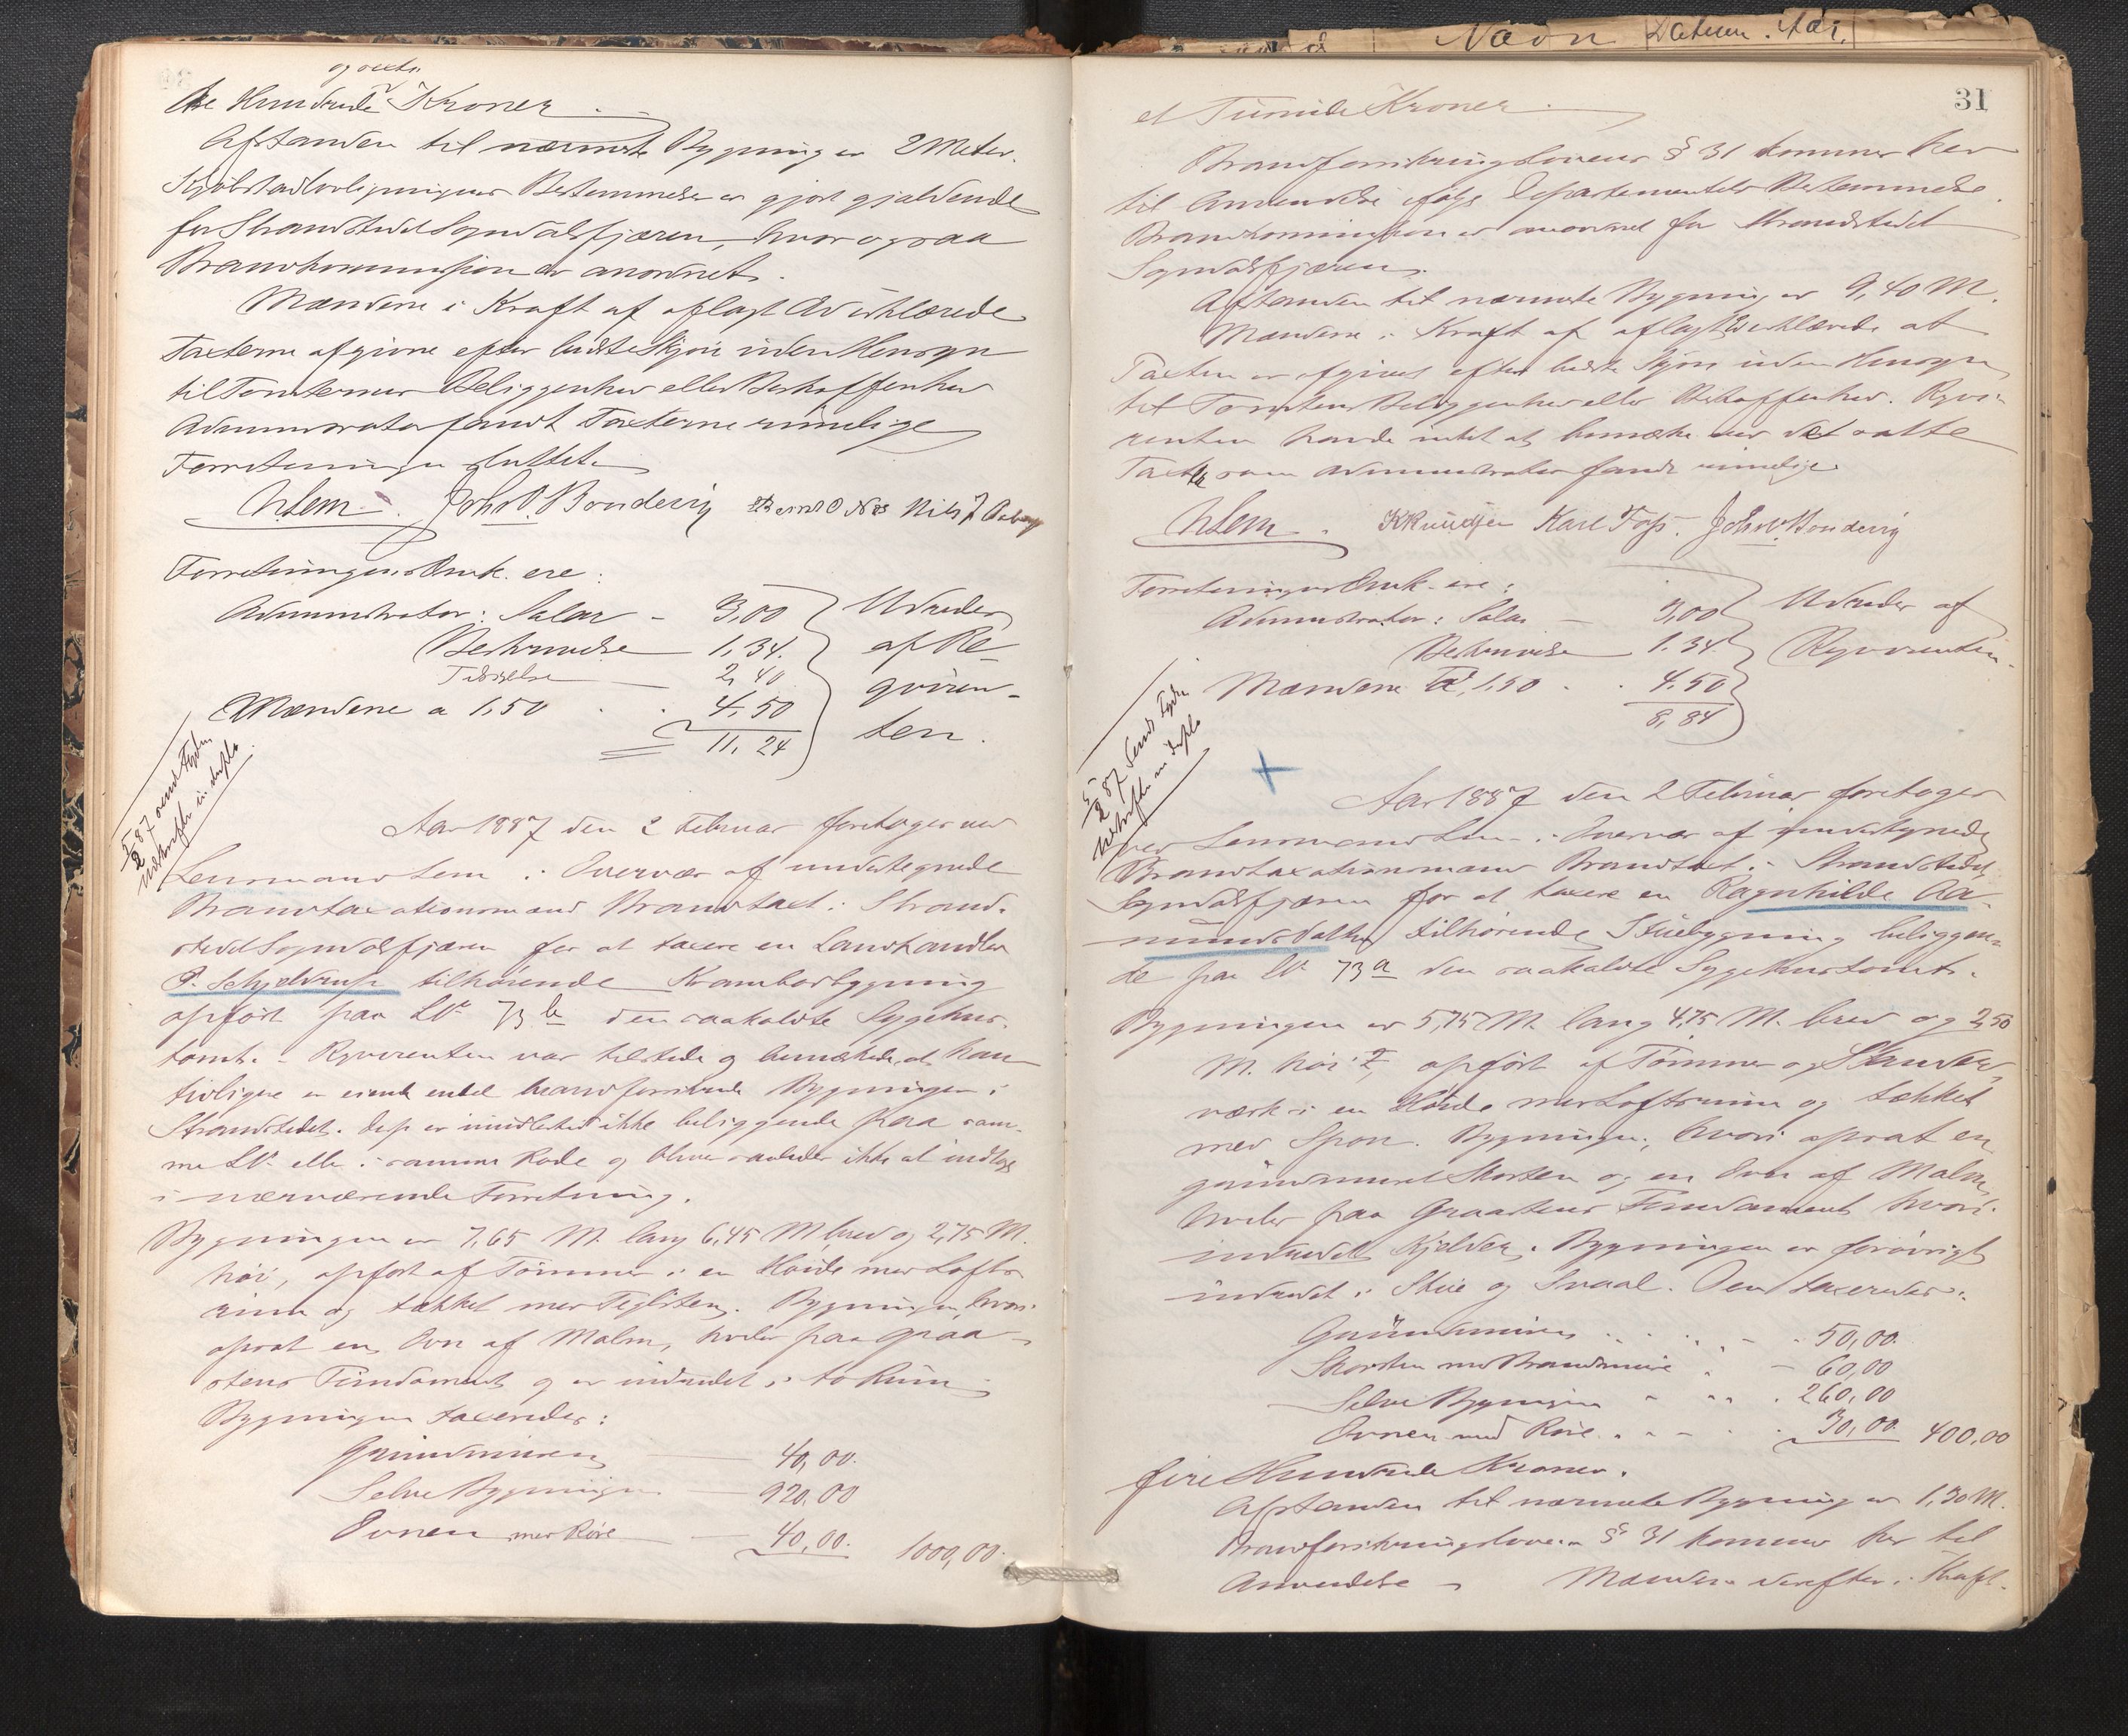 Nævn Datum Aar.
og sexti
Hundrede Kroner
Afstanden til nærmeste Bygning er 2 Meter.
Kjøbstadlovgivningens Bestemmelser er gjort gjældende
for Strandstedet Sogndalsfjæren, hvor ogsaa
Brandkommission er anordnet.
Mændene i Kraft af aflagt Ed erklærede
Taxterne afgivne efter bedste Skjøn uden Hensyn
til Tomternes Beliggenhed eller Beskaffenhed
Administrator fandt Taxterne rimelige
Forretningen sluttet.
NLem. Joh. O. Bondevig Bernt O Næs Nils J
Forretningens Omk. ere:
Administrator: Salar - 3,00 Udredes
Beskrivelse 1,34. af Re-
Tilsigelse 2,40 qviren-
Mændene a 1,50 4,50 ten.
11,24
5/2 87 sendt Fogden
Udskrift in duplo.
Aar 1887 den 2 Februar foretoges ved
Lensmand Lem i Overvær af undertegnede
Brandtaxationsmænd Brandtaxt i Strand-
stedet Sogndalsfjæren for at taxere en Landhandler
O. Schjeldrup tilhørende Krambodbygning
opført paa LN 73 b den saakaldte Sygehus-
tomt. - Rqvirenten var tilstede og bemærkede at han
tidligere er eiende endel brandforsikrede Bygninger i
Strandstedet. Disse er imidlertid ikke beliggende paa sam-
me LN eller i samme Rode og bliver saaledes ikke at indtage
i nærværende Forretning.
Bygningen er 7,65 M. lang 6,45 M bred og 2,75 M.
høi, opført af Tømmer i en Høide med Lofts-
rum og tækket med Teglsten. Bygningen, hvori
opsat en Ovn af Malm, hviler paa Graa-
stens Fundament og er indredet i to Rum
Bygningen taxeredes:
Grundmuren 40,00.
Selve Bygningen 920,00
Ovnen med Rør 40,00. 1000,00.
31
et Tusinde Kroner.
Brandforsikringslovens § 31 kommer her
til Anvendelse ifølge Departementets Bestemmelse.
Brandkommission er anordnet for Strandstedet
Sogndalsfjæren.
Afstanden til nærmeste Bygning er 9,40 M.
Mændene i Kraft af aflagt Ed erklærede at
Taxten er afgivet efter bedste Skjøn uden Hensyn
til Tomtens Beliggenhed eller Beskaffenhed. Rqvi-
renten havde intet at bemærke ved det satte
Taxt, som Administrator fandt rimelige.
NLem. K Knudsen Karl Foss. Joh. O. Bondevig
Forretningens Omk. ere:
Administrator: Salar - 3,00 Udredes af
Beskrivelse 1.34 Rqvirenten.
Mændene a 1,50 4.50
8,84
5/2 87 Sendt Fogden
Udskrift in duplo
Aar 1887 den 2 Februar foretoges
ved Lensmand Lem i Overvær af undertegnede
Brandtaxationsmænd Brandtaxt i Strandstedet
Sogndalsfjæren for at taxere en Ragnhilde Aa-
mundsdatter tilhørende Stuebygning beliggen-
de paa LN 73 a den saakaldte Sygehustomt.
Bygningen er 5,75 M. lang 4,75 M. bred og 2,50
M. høi, opført af Tømmer og Stænder-
værk i en Høide med Loftsrum og tækket
med Spon. Bygningen, hvori opsat en
grundmuret Skorsten og en Ovn af Malm,
hviler paa Graastens Fundament hvori
indredet Kjelder. Bygningen er forøvrigt
indredet i Stue og Svaal. Den taxeredes:
Grundmuren 50,00.
Skorsten med Brandmure 60,00
Selve Bygningen 260,00
Ovnen med Rør 30,00. 400,00
fire Hundrede Kroner.
Afstanden til nærmeste Bygning er 1,30 M.
Brandforsikringslovens § 31 kommer her til
Anvendelse - Mændene derefter i Kraft